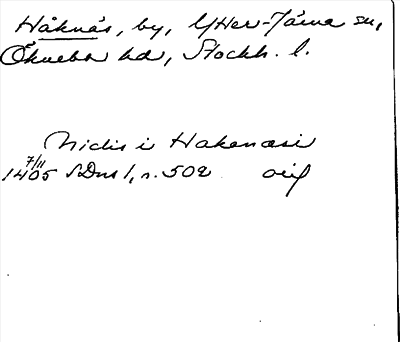 Håknäs, by, Ytter-Järna sn,
Öknebo hd, Stockh. l.
Nidis i Hakanæsi
7/11
1405 SDns 1, s. 502 orig